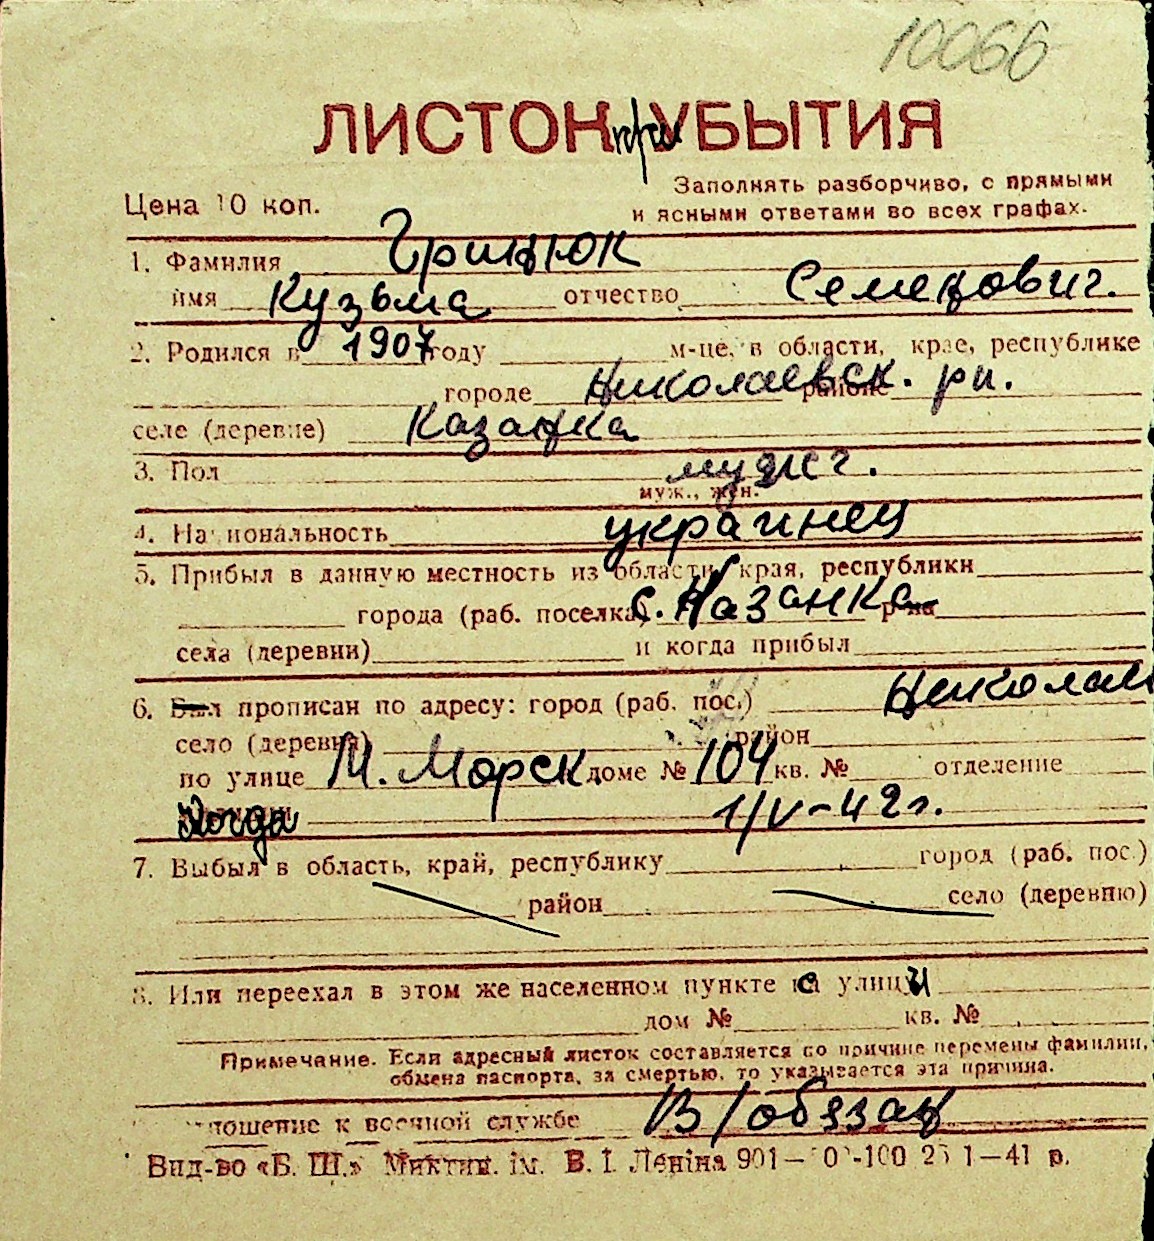 10066
ЛИСТОК при УБЫТИЯ
Цена 10 коп.
Заполнять разборчиво, с прямыми
и ясными ответами во всех графах.
1. Фамилия Грицюк
имя Кузьма отчество Семенович.
2. Родился в 1907 году м-це, в области, крае, республике
городе Николаевск. районе рн.
селе (деревне) Казанка
3. Пол мужс.
муж., жен.
4. Национальность украинец
5. Прибыл в данную местность из области, края, республики
города (раб. поселка) с. Казанка р-на
села (деревни) и когда прибыл
6. Был прописан по адресу: город (раб. пос.) Николаев
село (деревня) район
по улице М. Морск доме № 104 кв. № отделение
Когда 1/V-42 г.
7. Выбыл в область, край, республику город (раб. пос.)
район село (деревню)
8. Или переехал в этом же населенном пункте с улицы
дом № кв. №
Примечание. Если адресный листок составляется по причине перемены фамилии,
обмена паспорта, за смертью, то указывается эта причина.
ношение к военной службе В/обязан
Вид-во «Б. Ш.» Микт ім. В. І. Леніна 901— 1—41 р.